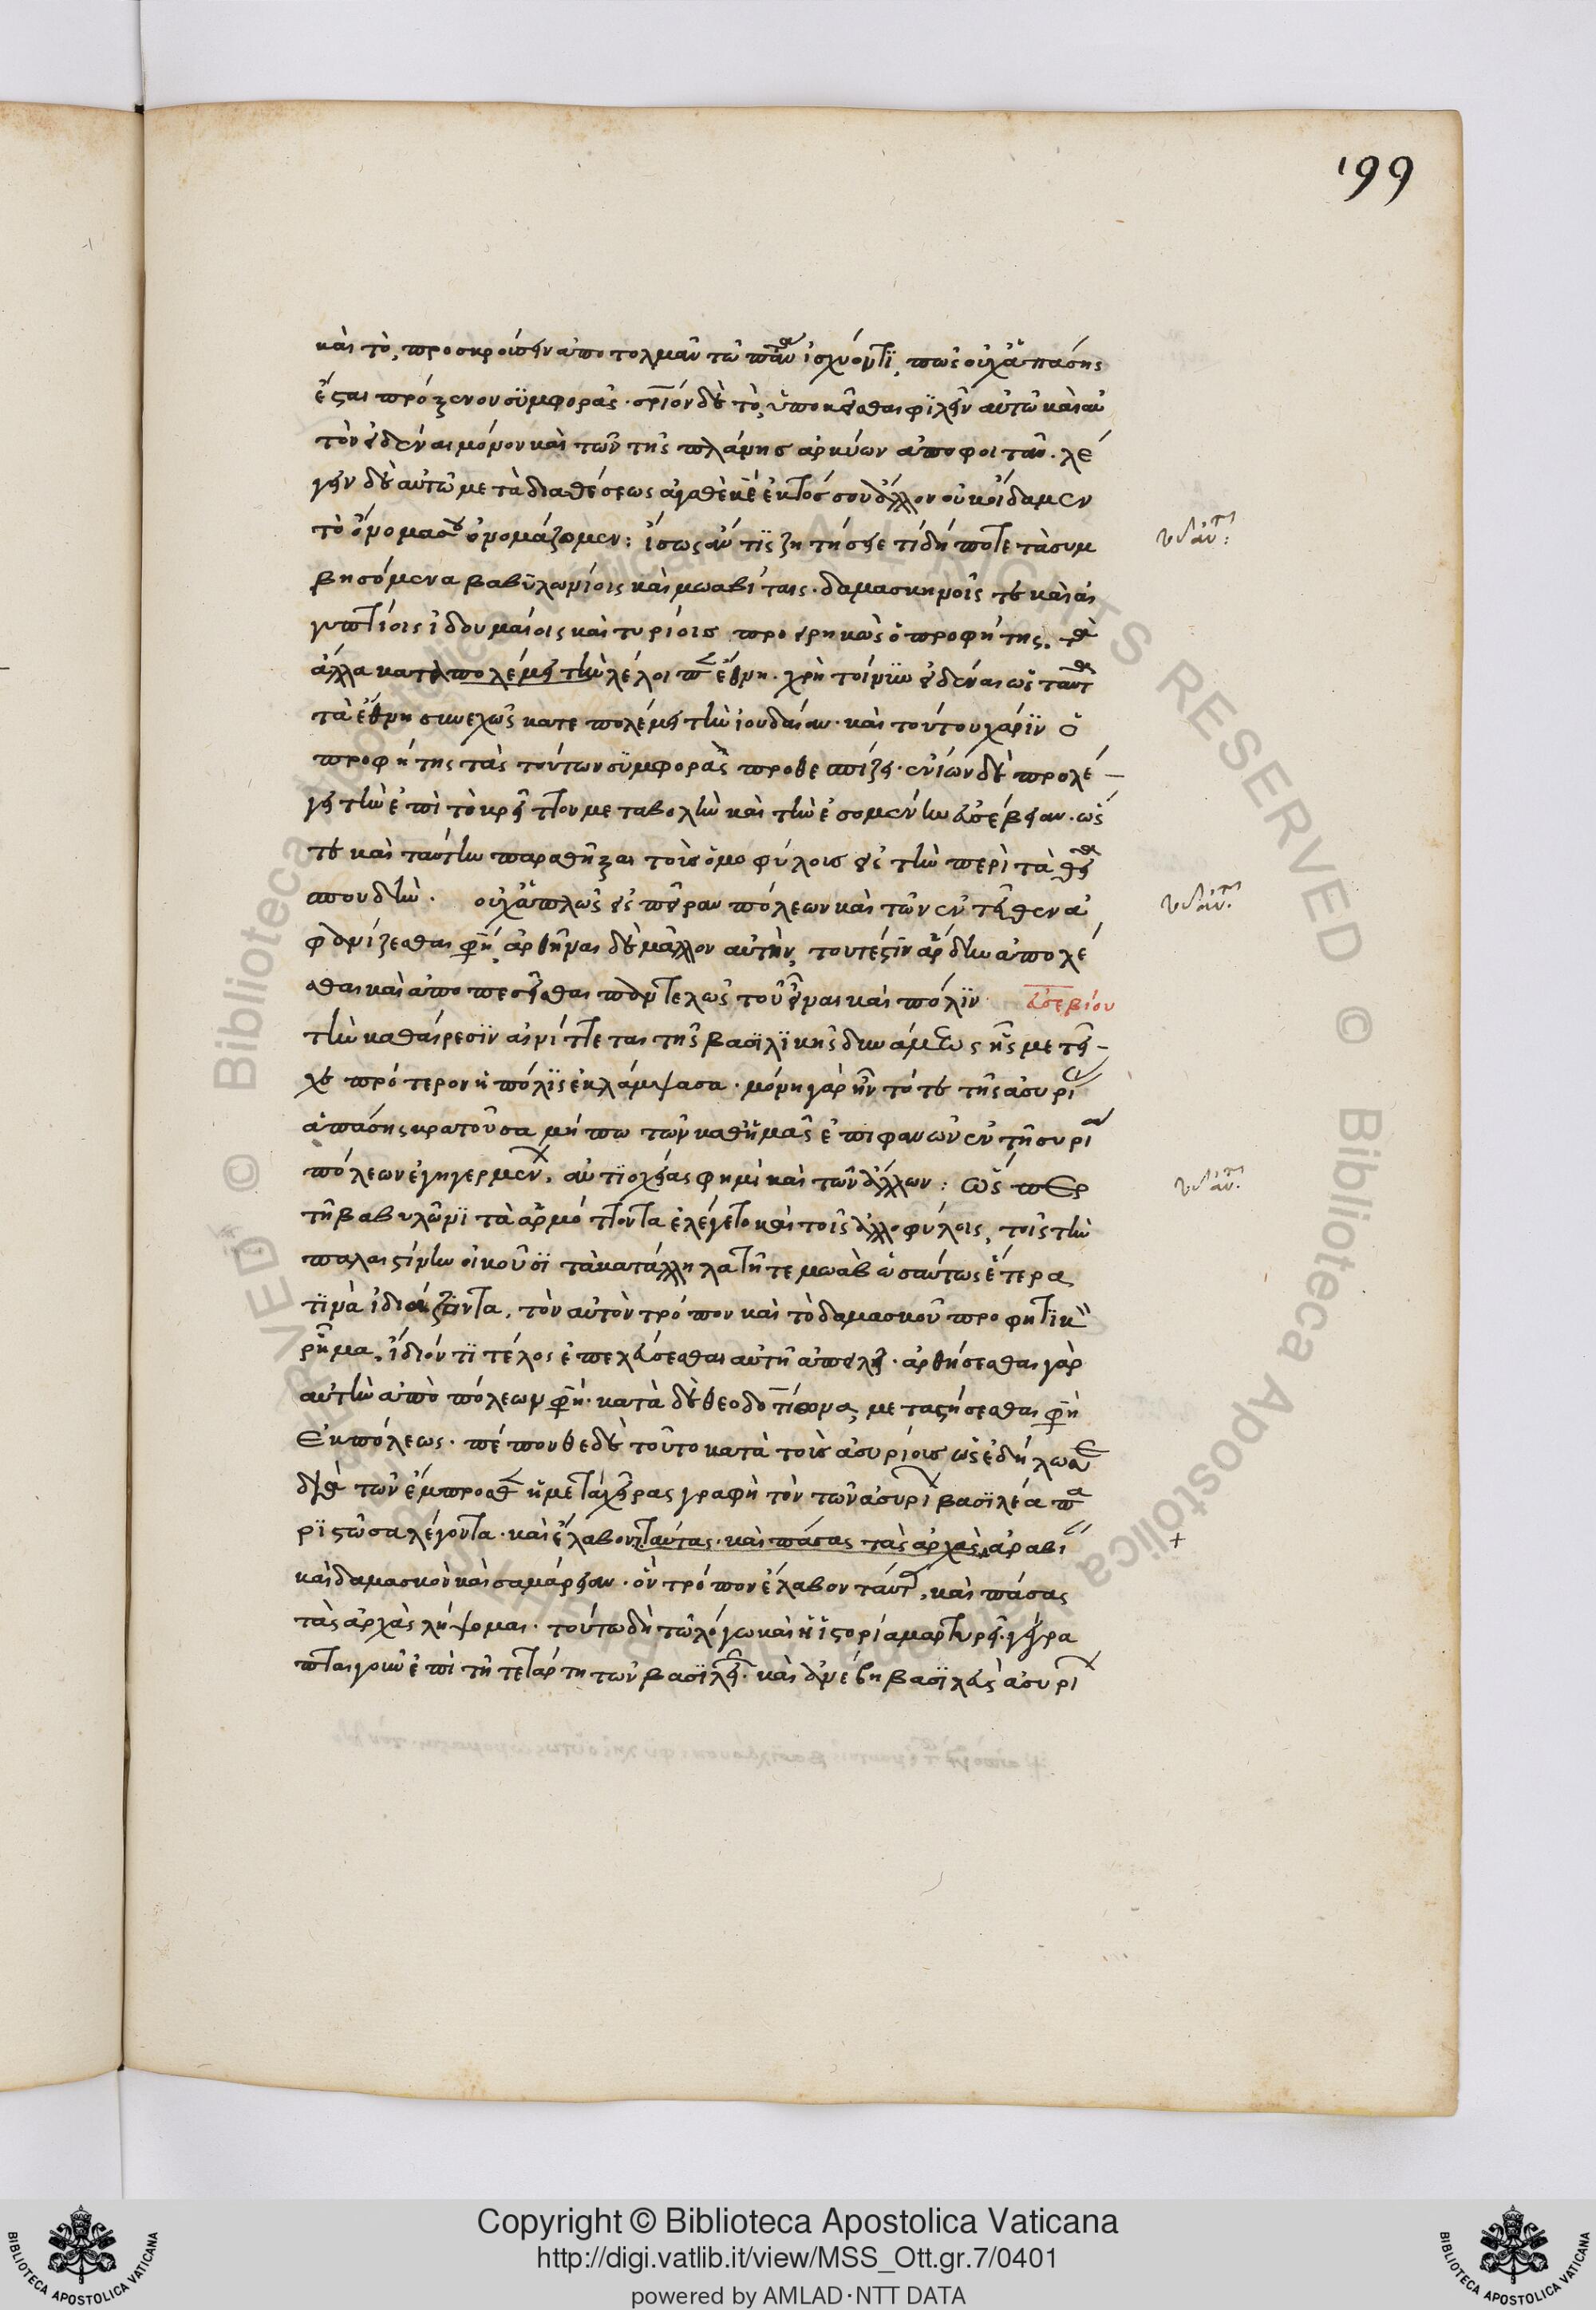 199
καὶ τὸ προσκρούειν ἀποτολμᾶν τῶ πάντα ἰσχύοντι, πῶς οὐχ ἁπάσης
ἔσται πρόξενον συμφορᾶς· ὅσιον δὲ τὸ ὑποκεῖσθαι φιλεῖν αὐτῶ καὶ αὐ
τὸν εἰδέναι μόνον καὶ τῶν τῆς πλάνης ἀρκύων ἀποφοιτᾶν. λέ
γειν δὲ αὐτῶ μετὰ διαθέσεως ἀγαθὲ κε ἐκτός σου ἄλλον οὐκ οἴδαμεν
τὸ ὄνομά σου ὀνομάζομεν: ἴσως ἄν τις ζητήσειε τί δή ποτε τὰ συμ
βησόμενα βαβυλωνίοις καὶ μωαβίταις· δαμασκηνοῖς τε καὶ αἰ
γυπτίοις ἰδουμαίοις καὶ τυρίοις προειρηκὼς ὁ προφήτης. τὰ
ἄλλα καταπολεμεῖ τὴν λέλοιπεν ἔθνη. χρὴ τοίνυν εἰδέναι ὡς ταῦτα
τὰ ἔθνη συνεχῶς κατεπολέμει τὴν ἰουδαίαν· καὶ τούτου χάριν ὁ
προφήτης τὰς τούτων συμφορὰς προθεσπίζει· ἐνίων δὲ προλέ
γει τὴν ἐπὶ τὸ κρεῖττον μεταβολὴν καὶ τὴν ἐσομένην εὐσέβειαν. ὡς
τε καὶ ταύτην παραθῆξαι τοὺς ὁμοφύλους εἰς τὴν περὶ τὰ θεῖα
σπουδήν. οὐχ ἁπλῶς εἰς πεῖραν πόλεων καὶ τῶν ἐντεῦθεν ἀ
φανίζεσθαι φησὶ, ἀρθῆναι δὲ μᾶλλον αὐτὴν, τουτέστιν ἄρδην ἀπολέ
σθαι καὶ ἀποπεσεῖσθαι παντελῶς τοῦ εἶναι καὶ πόλιν· εὐσεβίου
τὴν καθαίρεσιν αἰνίττεται τῆς βασιλικῆς δυνάμεως ἧς μετεῖ
χε πρότερον ἡ πόλις ἐκλάμψασα. μόνη γὰρ ἦν τότε τῆς ἀσυρίας
ἁπάσης κρατοῦσα μήπω τῶν καθ ἡμᾶς ἐπιφανῶν ἐν τῆ συρία
πόλεων ἐγηγερμένων, ἀντιοχείας φημὶ καὶ τῶν ἄλλων: ὥσπερ
τῆ βαβυλῶνι τὰ ἁρμόττοντα ἐλέγετο καὶ τοῖς ἀλλοφύλοις, τοῖς τὴν
παλαιστίνην οἰκοῦσι τὰ κατάλληλα τῆ τε μωὰβ ὡσαύτως ἕτερα
τινὰ ἰδιάζοντα, τὸν αὐτὸν τρόπον καὶ τὸ δαμασκοῦ προφητικὸν
ῥῆμα, ἴδιόν τι τέλος ἐπελεύσεσθαι αὐτῆ ἀπειλεῖ. ἀρθήσεσθαι γὰρ
αὐτὴν ἀπὸ πόλεων φησὶ. κατὰ δὲ θεοδοτίωνα, μεταστήσεσθαι φησὶ
ἐκ πόλεως. πέπονθε δὲ τοῦτο κατὰ τοὺς ἀσυρίους ὡς ἐδήλωσε
διὰ τῶν ἔμπροσθεν ἡ μετὰ χεῖρας γραφὴ τὸν τῶν ἀσυρίων βασιλέα πα
ριστῶσα λέγοντα. καὶ ἔλαβον ταύτας. καὶ πάσας τὰς ἀρχὰς ἀραβίαν
καὶ δαμασκὸν καὶ σαμάρειαν. ὃν τρόπον ἔλαβον ταύτας, καὶ πάσας
τὰς ἀρχὰς λήψομαι. τούτω δὴ τῶ λόγω καὶ ἡ ἱστορία μαρτυρεῖ. γέγρα
πται γοῦν ἐπὶ τῆ τετάρτη τῶν βασιλειῶν. καὶ ἀνέβη βασιλεὺς ἀσυρίων
Copyright © Biblioteca Apostolica Vaticana
http://digi.vatlib.it/view/MSS_Ott.gr.7/0401
powered by AMLAD·NTT DATA
BIBLIOTECA APOSTOLICA VATICANA
BIBLIOTECA APOSTOLICA VATICANA